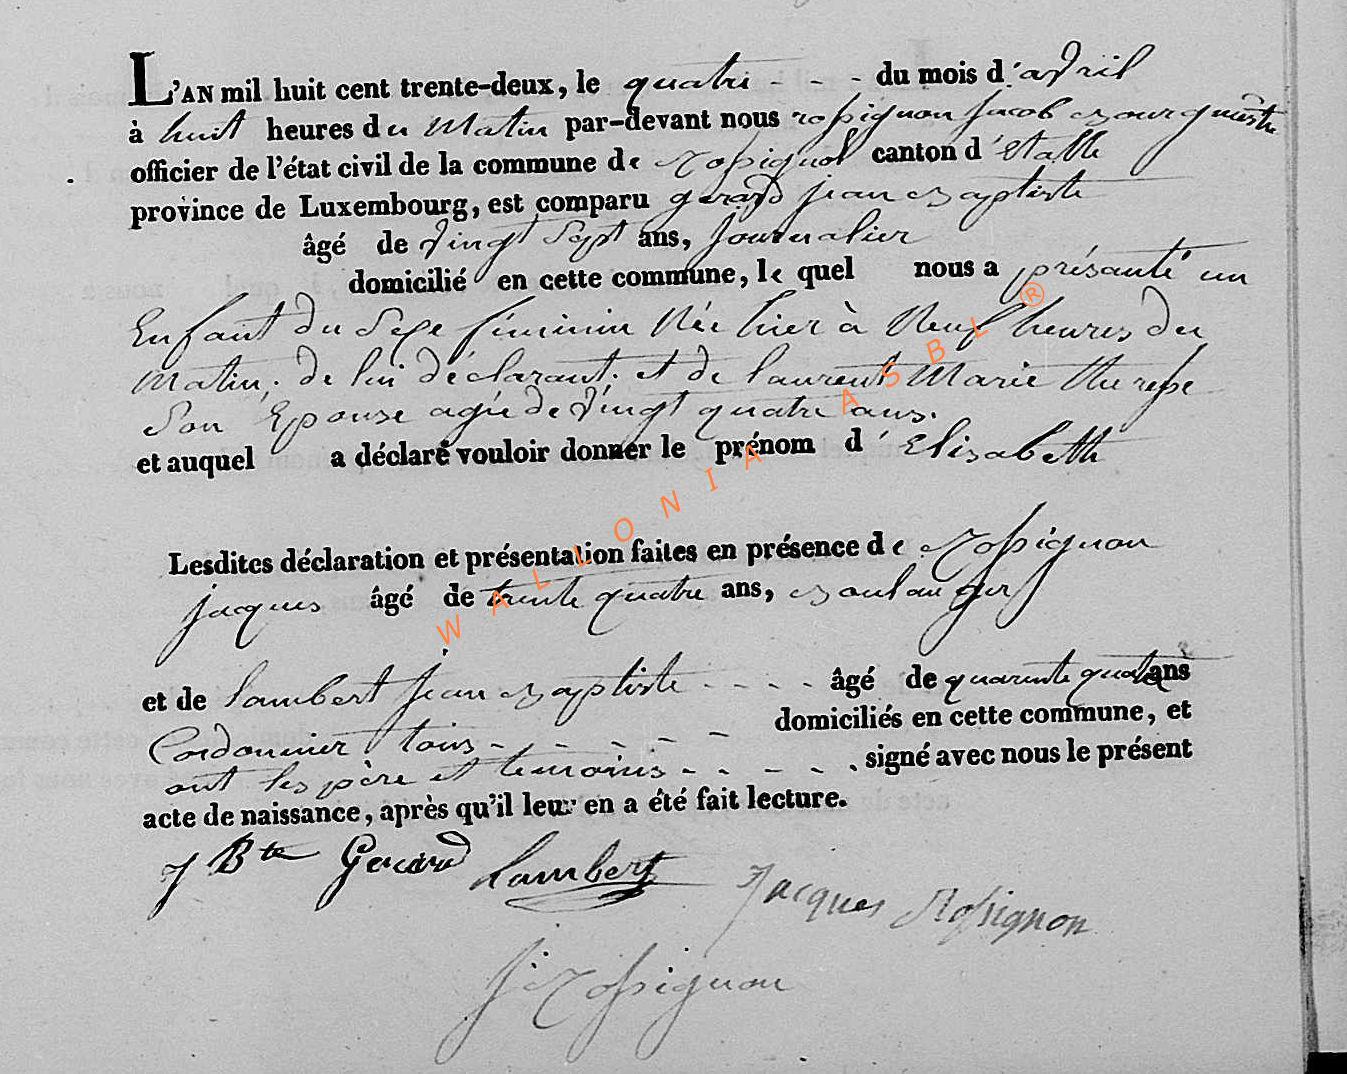 L'AN mil huit cent trente-deux, le quatre - - - du mois d'avril
à huit heures du Matin par-devant nous rossignon jacob bourguestre
officier de l'état civil de la commune de rossignol canton d'étalle
province de Luxembourg, est comparu gerard jean baptiste
âgé de vingt sept ans, journalier
domicilié en cette commune, le quel nous a présanté un
Enfant du Sexe féminin Née hier à Neuf heures du
Matin, de lui déclarant; et de laurent Marie therese
Son Epouse agée de vingt quatre ans.
et auquel a déclaré vouloir donner le prénom d'Elisabeth
Lesdites déclaration et présentation faites en présence de rossignon
jacques âgé de trente quatre ans, boulanger
et de lambert jean baptiste - - - - âgé de quarente quatre ans
Cordonnier tous - - - - - domiciliés en cette commune, et
ont les père et temoins - - - - . signé avec nous le présent
acte de naissance, après qu'il leur en a été fait lecture.
J Bte Gerard Lambert Jacques Rossignon
J. rossignon
WALLONIA ASBL ®